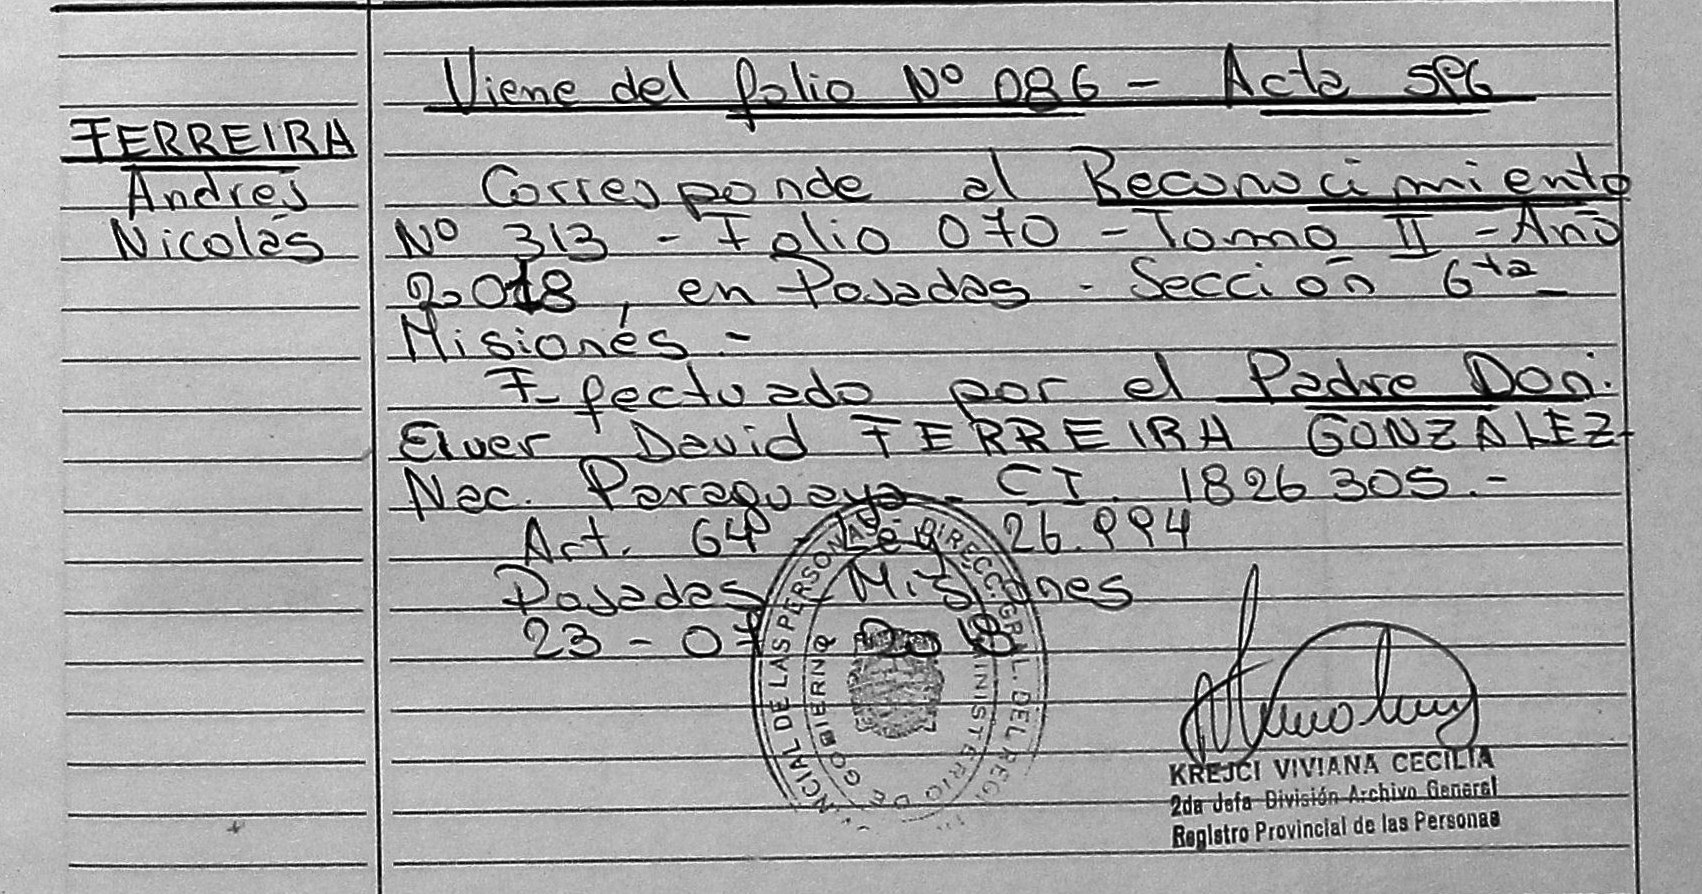 Viene del folio Nº 086 - Acta 596
FERREIRA
Andrés
Nicolás
Corresponde al Reconocimiento
Nº 313 - Folio 070 - Tomo II - Año
2.018, en Posadas - Sección 6ta
Misiones.-
Efectuado por el Padre Don.
Elver David FERREIRA GONZALEZ
Nac. Paraguaya - CI. 1826305.-
Art. 64 - Ley 26.994
Posadas Misiones
23-07 2018
NCIAL DE LAS PERSONAS DIRECC. GRAL. DEL REGI
MINISTERIO DE GOBIERNO
KREJCI VIVIANA CECILIA
2da Jefa División Archivo General
Registro Provincial de las Personas